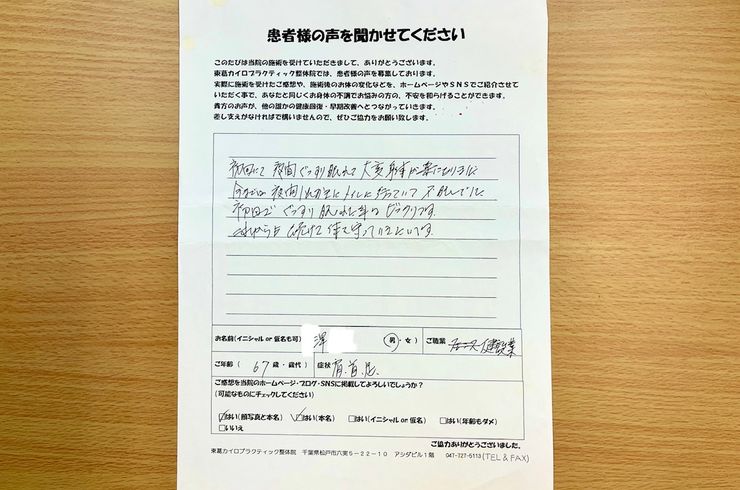 患者様の声を聞かせてください
このたびは当院の施術を受けていただきまして、ありがとうございます。
東葛カイロプラクティック整体院では、患者様の声を募集しております。
実際に施術を受けたご感想や、施術後のお体の変化などを、ホームページやSNSでご紹介させて
いただく事で、あなたと同じくお身体の不調でお悩みの方の、不安を和らげることができます。
貴方のお声が、他の誰かの健康回復・早期改善へとつながっていきます。
差し支えがなければで構いませんので、ぜひご協力をお願い致します。
初回にて 夜間ぐっすり眠れて 大変身体が楽になりました
今までは 夜間 トイレに行っていて
初回で ぐっすり眠れた事は ビックリです。
これからも 続けて 体を守っていきたいです。
お名前(イニシャル or 仮名も可) 澤 男・女 ご職業 建設業
ご年齢 67 歳・歳代 症状 肩.首.足.
ご感想を当院のホームページ・ブログ・SNSに掲載してよろしいでしょうか？
(可能なものにチェックしてください)
☑はい(顔写真と本名) ☑はい(本名) □はい(イニシャル or 仮名) □はい(年齢もダメ)
□いいえ
ご協力ありがとうございました。
東葛カイロプラクティック整体院 千葉県松戸市六実5－22－10 アシダビル1階 047-727-5113(TEL & FAX)